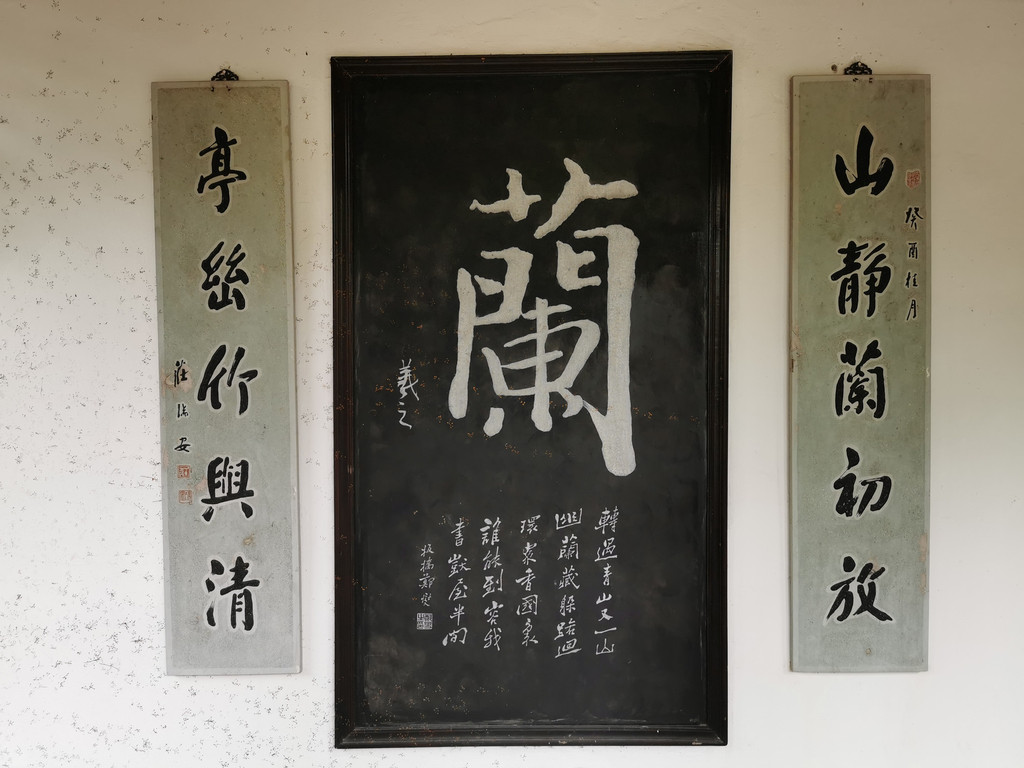 癸酉桂月
山靜蘭初放
蘭
羲之
轉過青山又一山
幽蘭藏躲路迴
環眾香國裏
誰能到容我
書獃屋半間
板橋鄭燮
亭幽竹與清